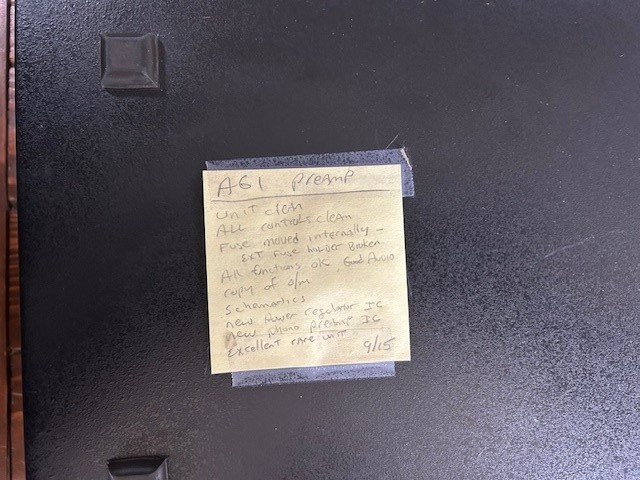 A61 Preamp
Unit clean
ALL controls clean
Fuse moved internally -
EXT Fuse holder Broken.
All functions ok. Good Audio
copy of o/m
Schematics
new power regulator IC
new phono preamp IC
excellent rare unit
9/15